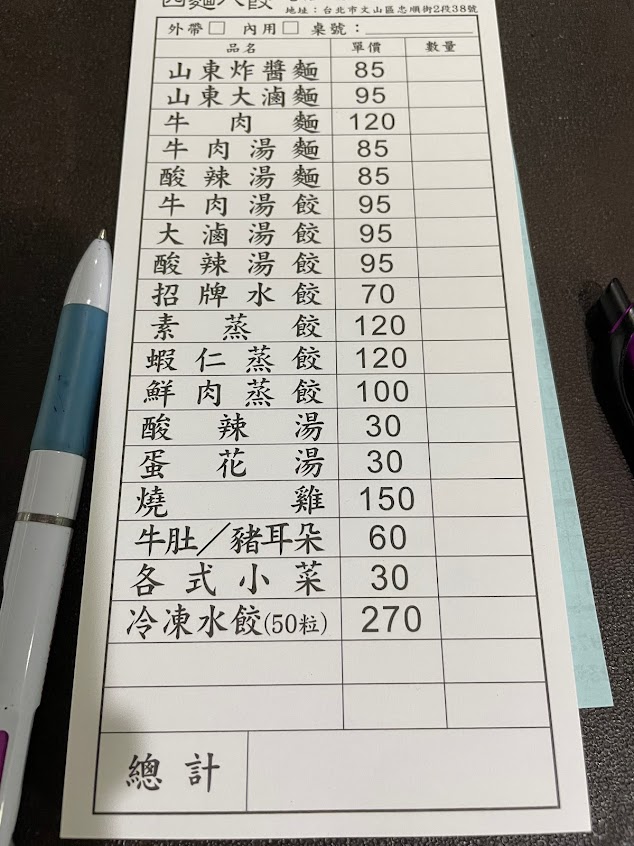 地址：台北市文山區忠順街2段38號
外帶□ 內用□ 桌號：
品名 單價 數量
山東炸醬麵 85
山東大滷麵 95
牛肉麵 120
牛肉湯麵 85
酸辣湯麵 85
牛肉湯餃 95
大滷湯餃 95
酸辣湯餃 95
招牌水餃 70
素蒸餃 120
蝦仁蒸餃 120
鮮肉蒸餃 100
酸辣湯 30
蛋花湯 30
燒雞 150
牛肚／豬耳朵 60
各式小菜 30
冷凍水餃(50粒) 270
總計